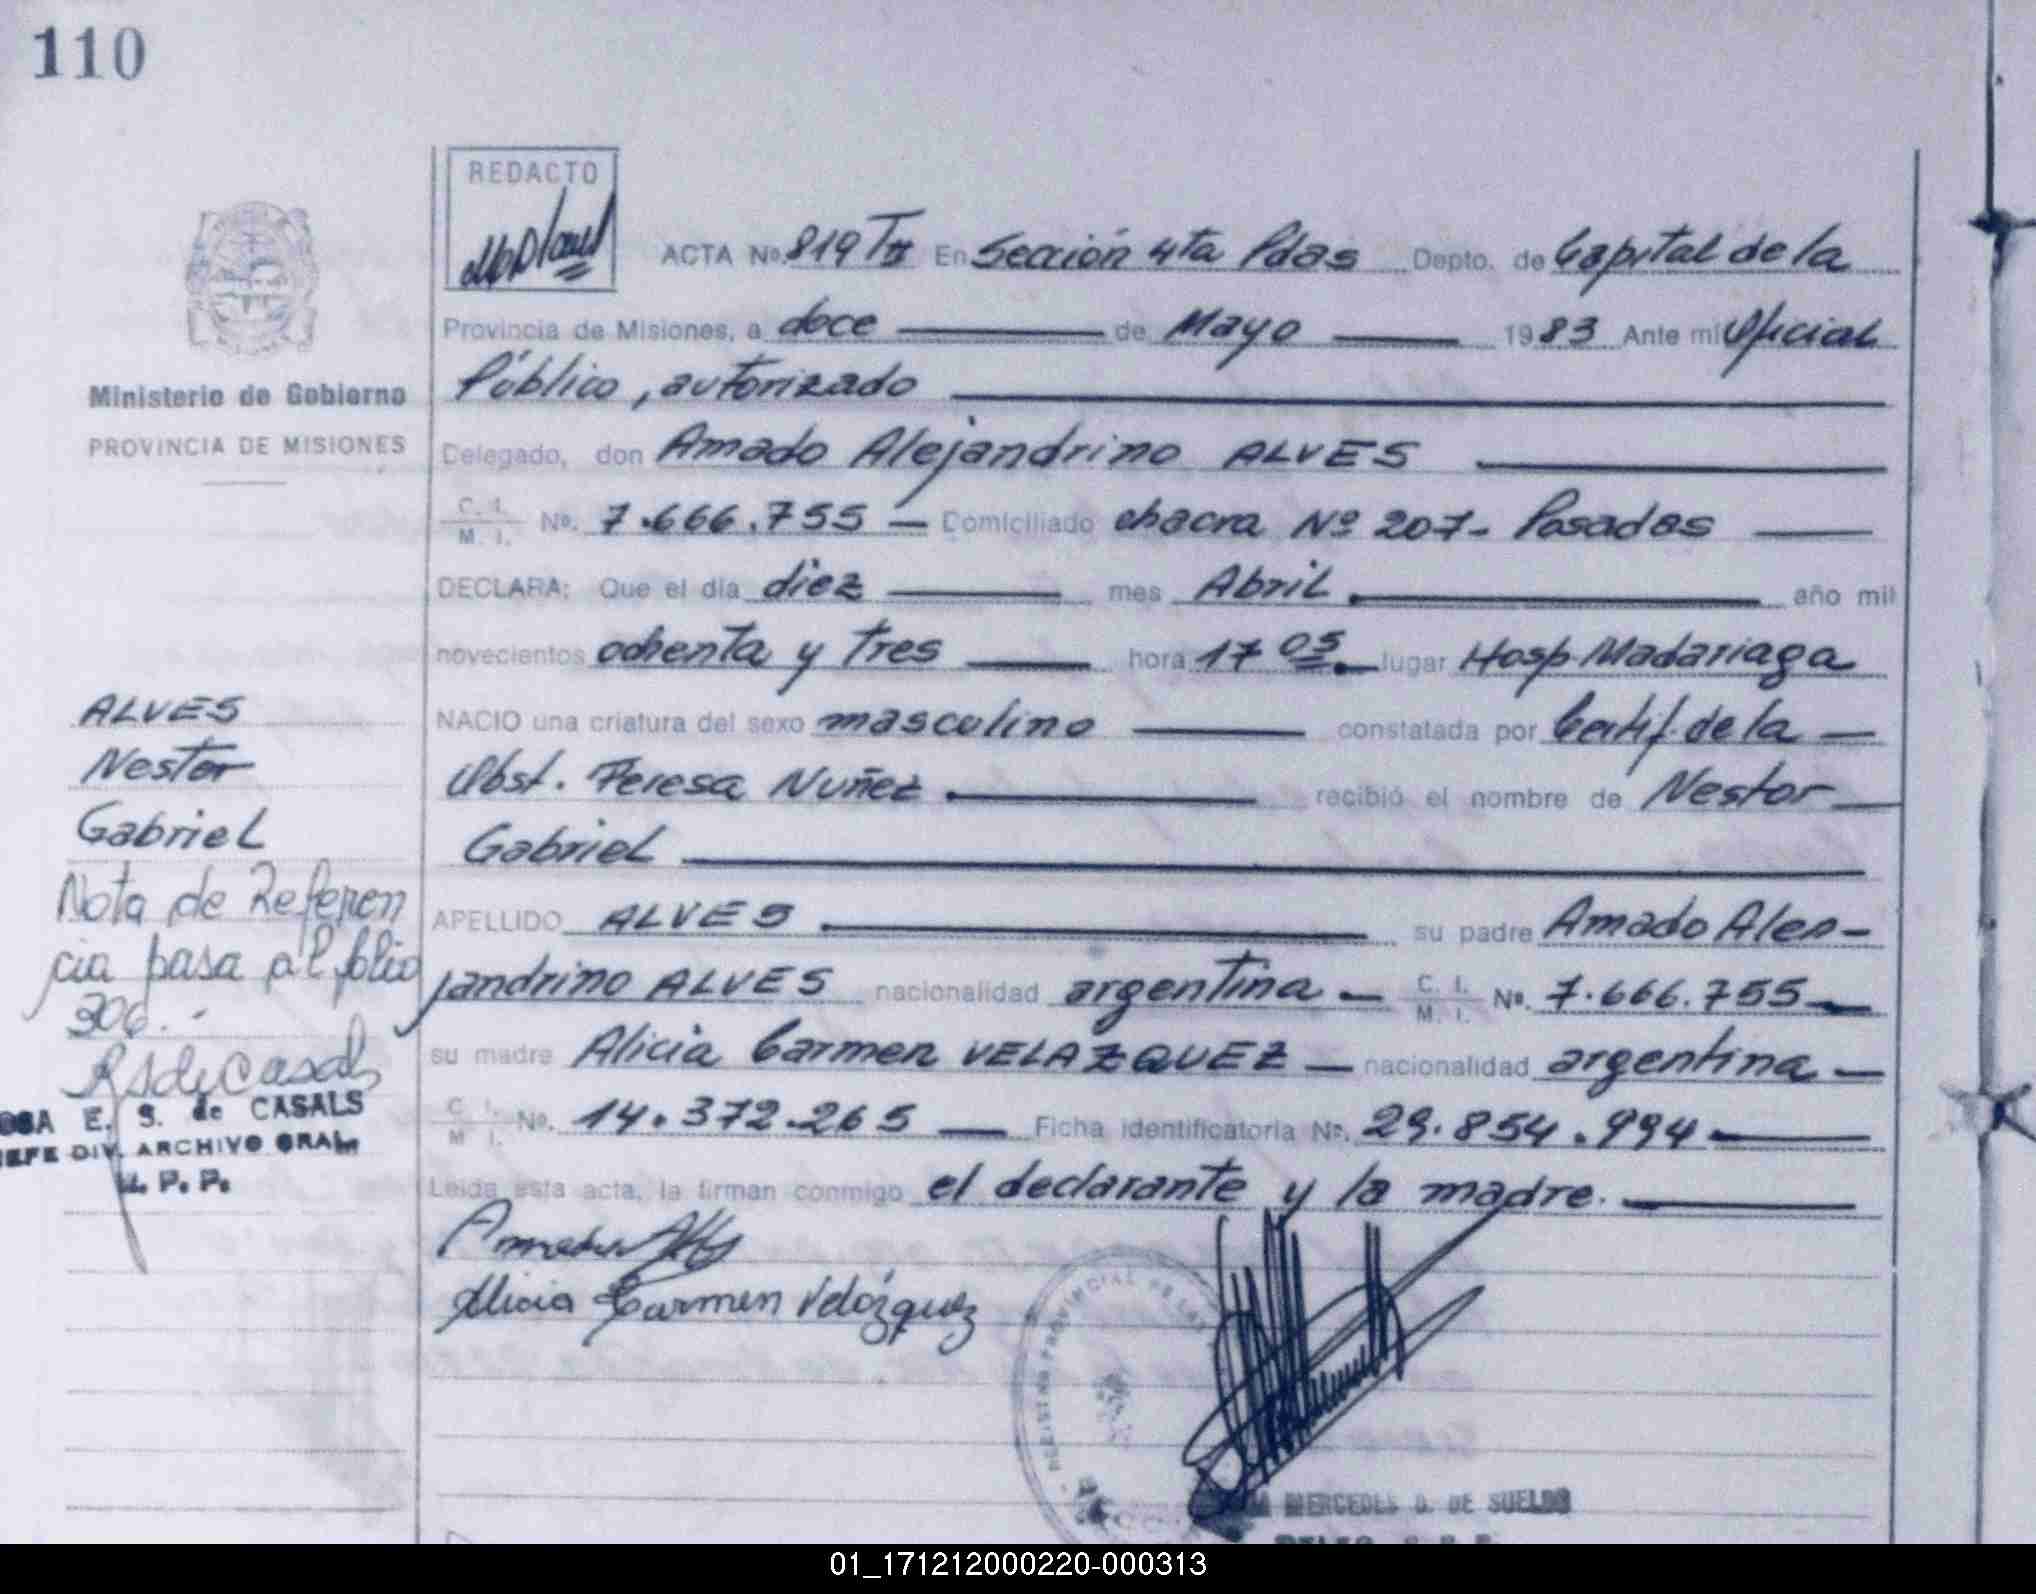 110
REDACTO
ACTA Nº. 819 TII En Sección 4ta Pdas Depto. de Capital de la
Provincia de Misiones, a doce de Mayo 1983 Ante mi Oficial
Público, autorizado
Ministerio de Gobierno
PROVINCIA DE MISIONES
Delegado, don Amado Alejandrino ALVES
C. I.
M. I. Nº. 7.666.755 — Domiciliado chacra Nº 207- Posadas
DECLARA: Que el día diez mes Abril año mil
novecientos ochenta y tres hora 17 05 lugar Hosp. Madariaga
NACIO una criatura del sexo masculino constatada por Certif. de la —
Obst. Teresa Nuñez recibió el nombre de Nestor
Gabriel
ALVES
Nestor
Gabriel
Nota de Referen
cia pasa al folio
306.-
RSdeCasals
OSA E. S. de CASALS
JEFE DIV. ARCHIVO GRAL.
R. P. P.
APELLIDO ALVES su padre Amado Ale-
jandrino ALVES nacionalidad argentina — C. I.
M. I. Nº. 7.666.755
su madre Alicia Carmen VELAZQUEZ — nacionalidad argentina —
C. I.
M. I. Nº. 14.372.265 — Ficha identificatoria Nº. 29.854.994
Leída esta acta, la firman conmigo el declarante y la madre.
Alicia Carmen Velázquez
REGISTRO PROVINCIAL DE LAS
MERCEDES D. DE SUELDO
01_171212000220-000313